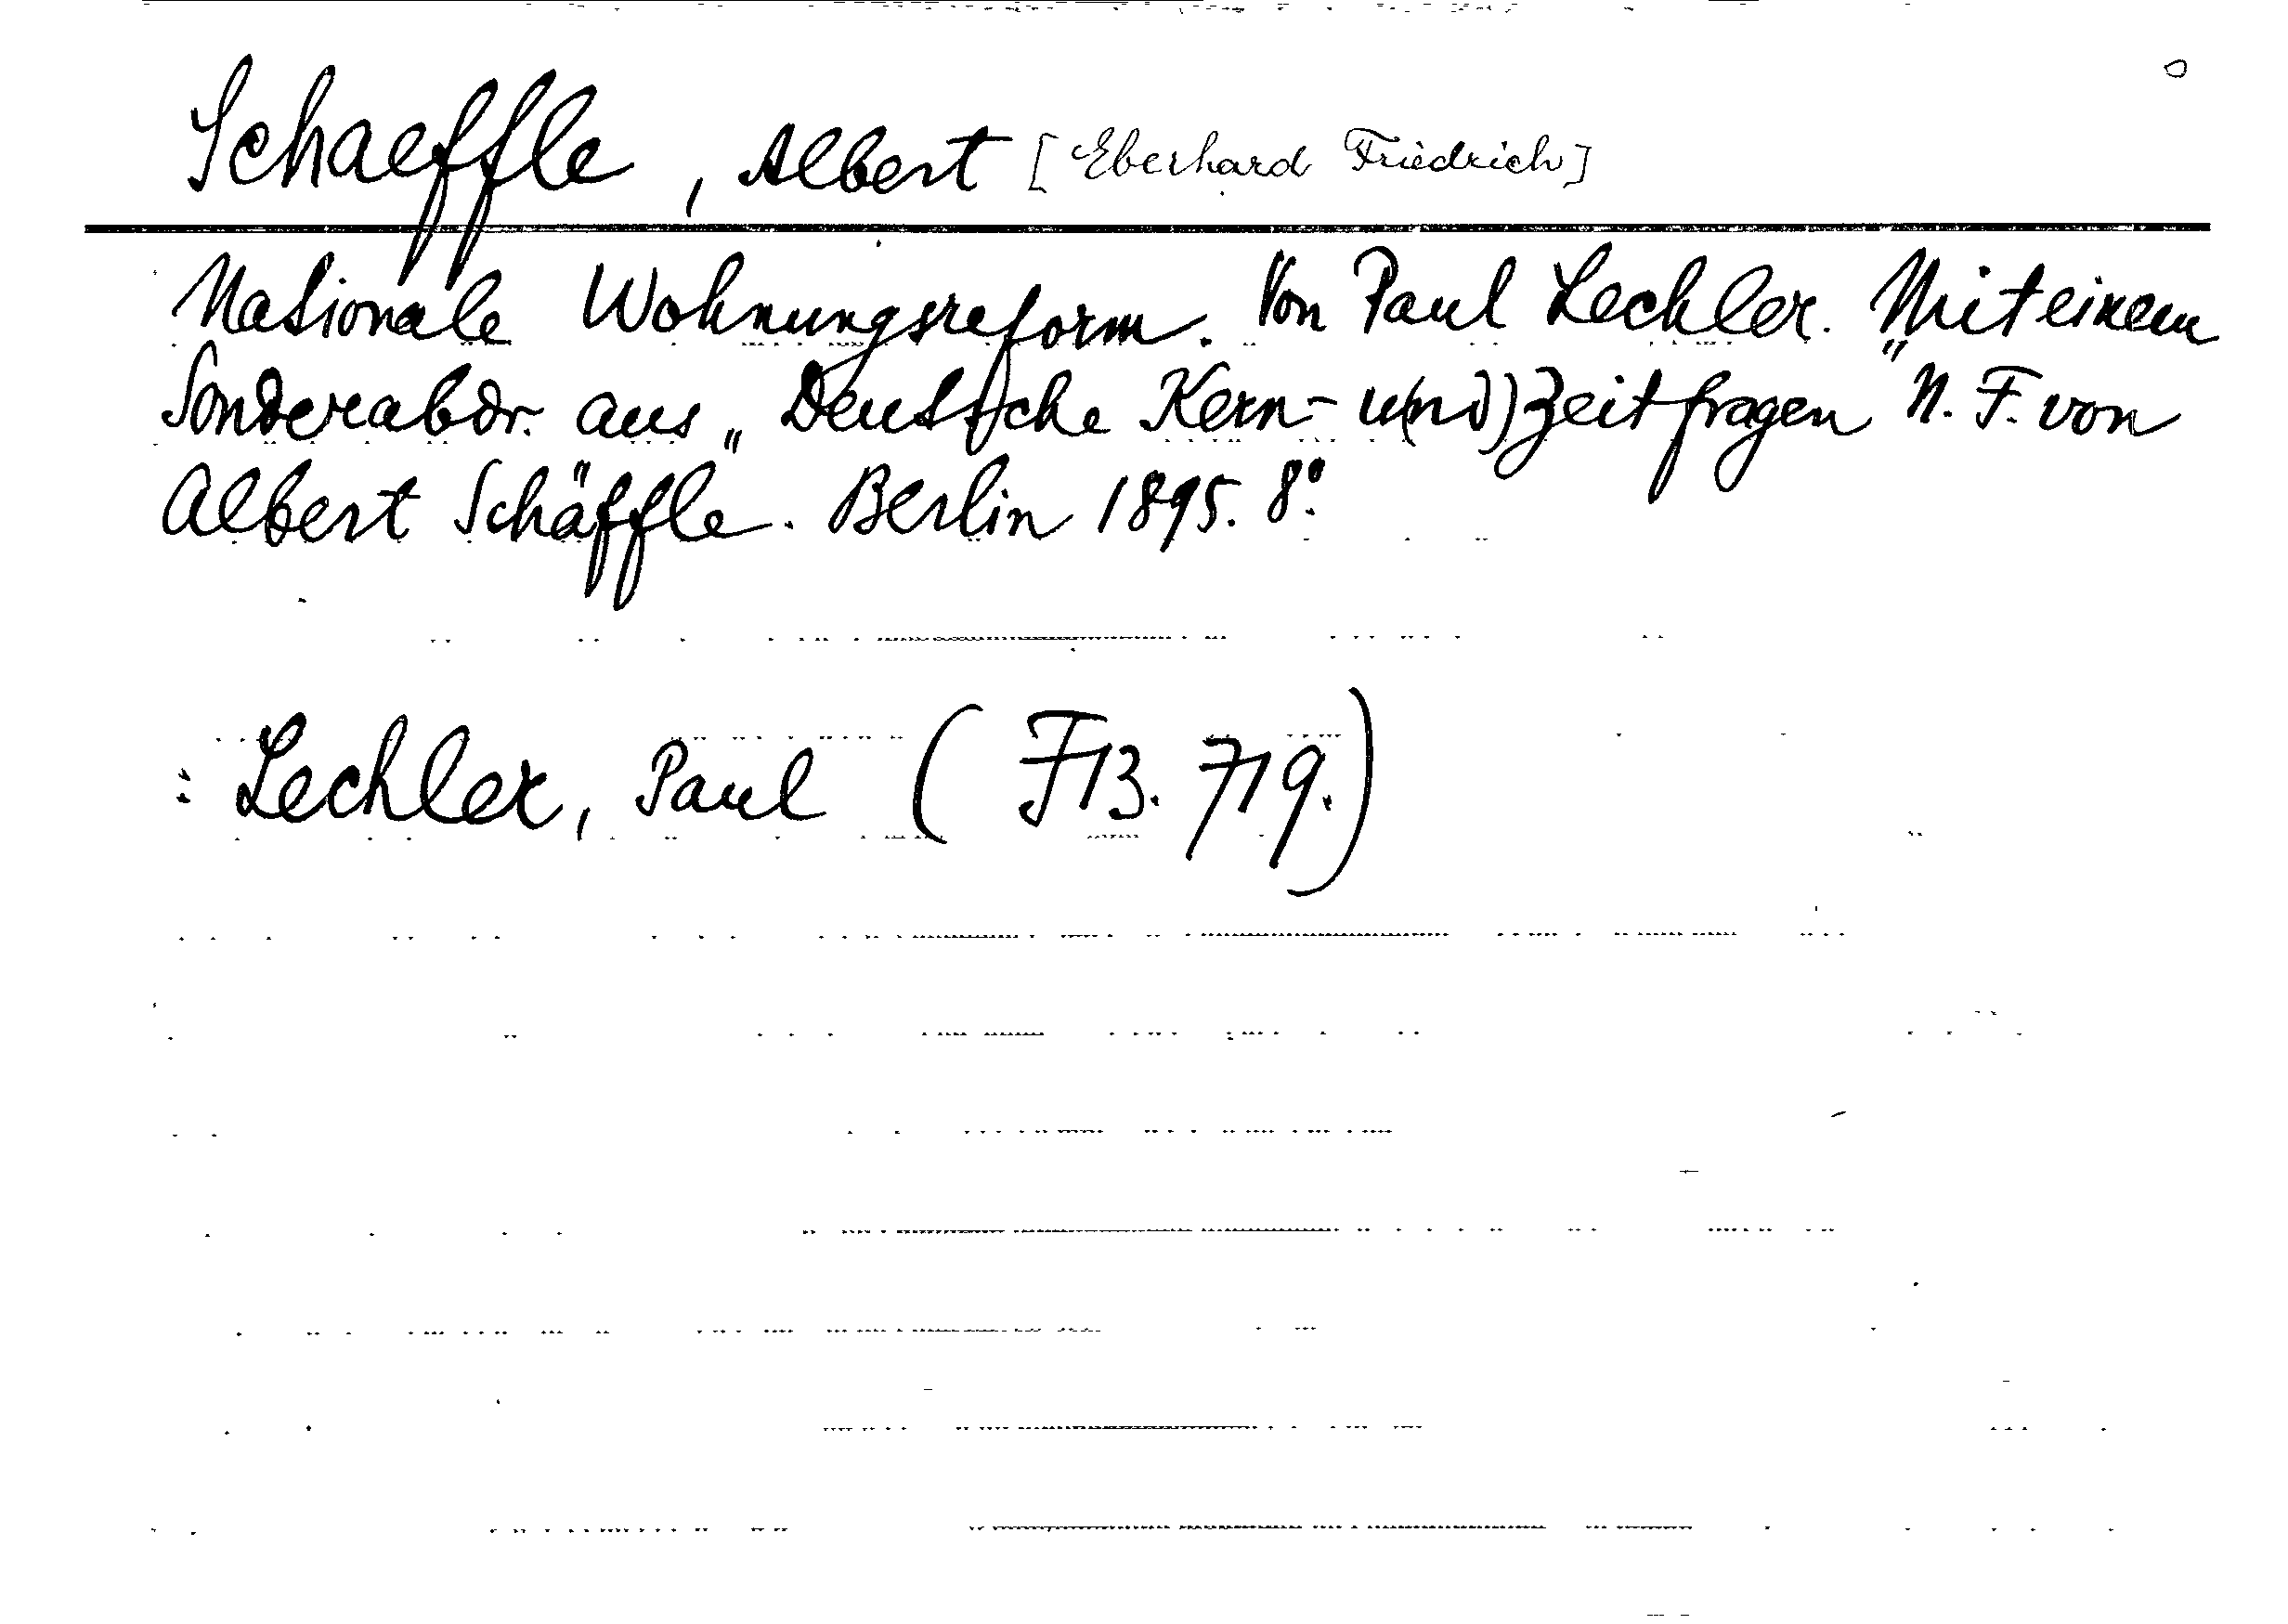 Schaeffle, Albert [Eberhard Friedrich]
Nationale Wohnungsreform. Von Paul Lechler. Mit einem
Sonderabdr. aus „Deutsche Kern- u(nd) Zeitfragen" N. F. von
Albert Schäffle. Berlin 1895. 8°.
: Lechler, Paul (F13. 719.)